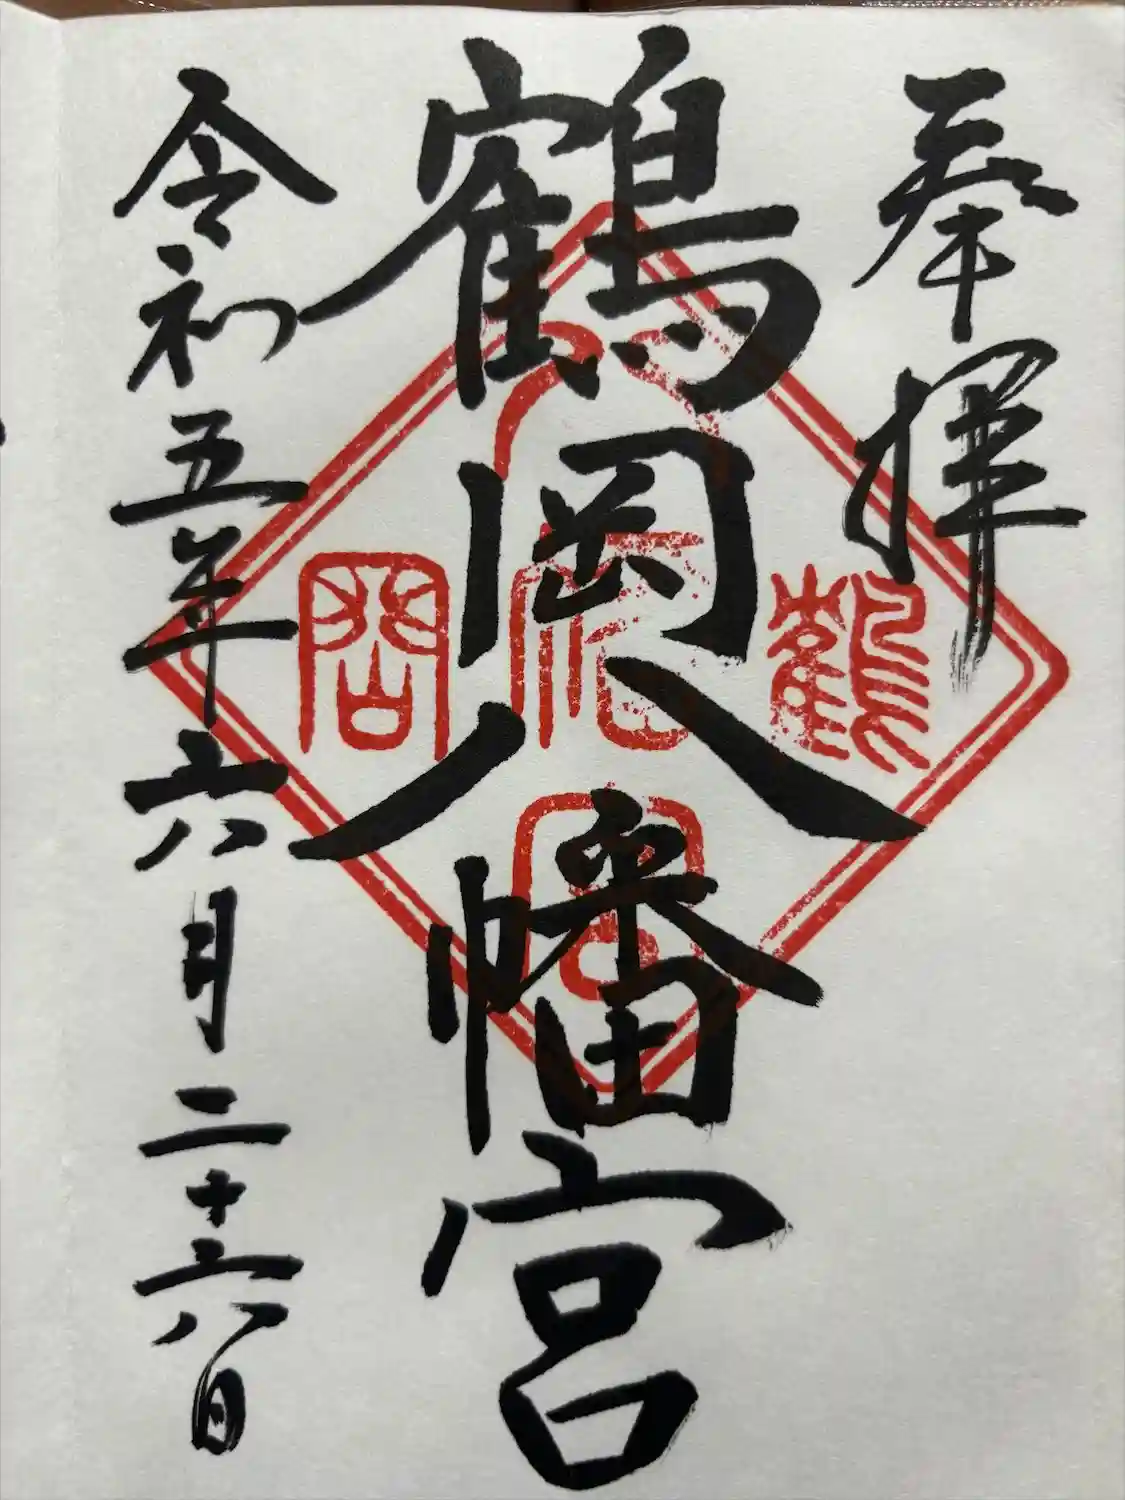 奉拝
鶴岡八幡宮
令和五年六月二十六日
鶴岡